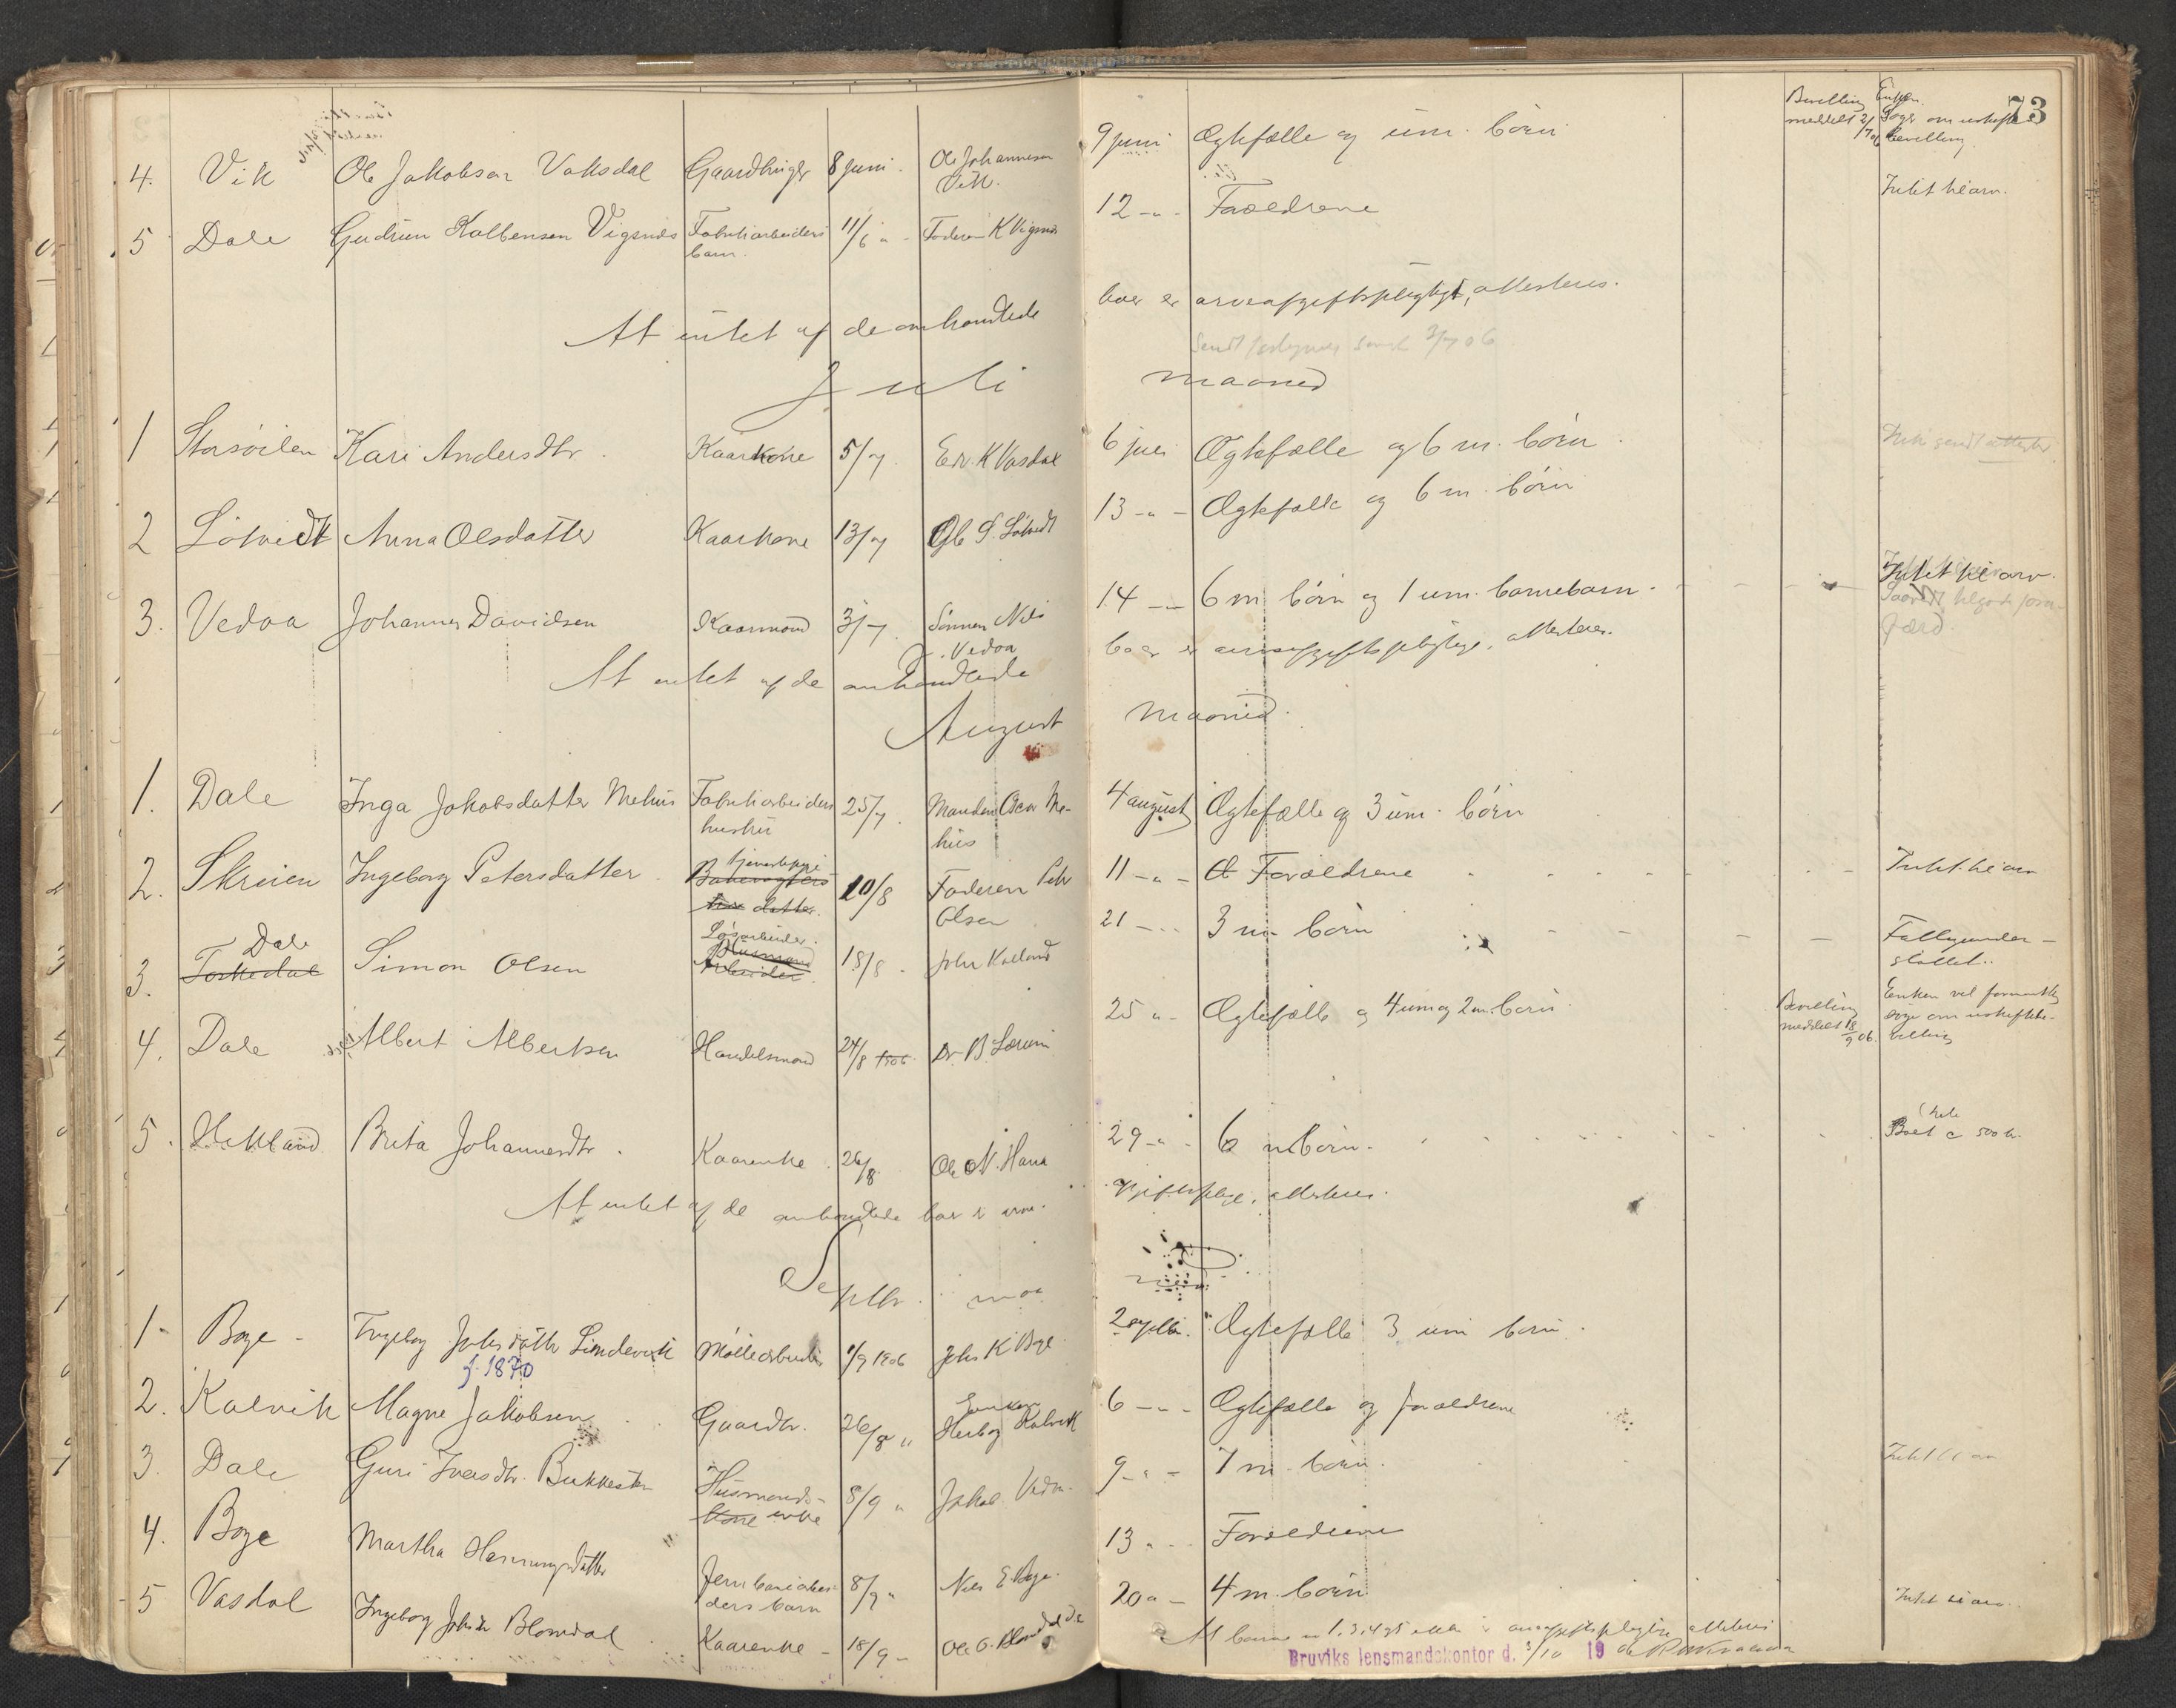 73
Bevilling
meddelt 2/7 06
Enken
Søgt om uskifte
bevilling.
4. Vik Ole Jakobsen Vaksdal Gaardbruger 8 juni. Ole Johannesen Vik. 9 juni Ægtefælle og um. børn
5 Dale Gudrun Kolbensen Vigsnes Fabrikarbeiders barn. 11/6 " Faderen K Vigsnes 12 - " - Forældrene Intet til arv.
At intet af de anmeldte boer er arveafgiftspligtigt, attesteres.
3/7 06
Juli maaned
1 Storsöilen Kari Andersdtr. Kaarkone 5/7. Edv. K Vasdal 6 juli Ægtefælle og 6 m. börn
2 Lötvedt Anna Olsdatter Kaarkone 13/7 Ole S. Lötvedt 13 - " - Ægtefælle og 6 m. börn
3. Vedaa Johannes Davidsen Kaarmand 3/7. Sönnen Nils J. Vedaa 14 - " - 6 m. börn og 1 um. barnebarn. Intet til arv.
færd.
At intet af de anmeldte boer er arveafgiftspligtige, attesteres.
August maaned.
1. Dale Inga Jakobsdatter Mehus Fabrikarbeiders hustru 25/7. Manden Oscar Mehus 4 august Ægtefælle og 3 um. börn
2. Skreien Ingeborg Petersdatter. tjenestepige Banevogters datter. 10/8 Faderen Petr Olsen 11 - " - Forældrene Intet til arv
3. Dale Toskedal Simon Olsen Lösarbeider. Husmand Arbeider. 18/8. John Kalland 21 - " - 3 m. börn Fattigunderstöttet.
4. Dale Albert Albertsen Handelsmand 24/8 1906 Dr. B Lærum 25 " - Ægtefælle og 4 um og 2 m. børn. Bevilling meddelt 18/9 06. Enken vil formentlig søge om uskiftebevilling
5. Helland Brita Johannesdtr. Kaarenke. 26/8. Ole N. Hana 29 - " - 6 m börn. Boet c 500 kr.
At intet af de anmeldte boer er arveafgiftspligt. attesteres.
Septbr. maaned
1 - Boge - Ingeborg Johsdatter Lindevik Mölleorbeider 1/9 1906 Johs K Boge 2 septbr. Ægtefælle 3 um børn.
f. 1870
2. Kalvik Magne Jakobsen Gaardbr. 26/8 " Enken Herborg Kalvik 6 - " - Ægtefælle og forældrene
3. Dale Guri Iversdtr. Bukkesten Husmands- kone enke 8/9 " Jakob Vedaa. 9 - " - 7 m. börn. Intet til arv
4. Boge Martha Henningsdatter Jernbanearbeiders barn 8/9 " Nils E Boge. 13 " - Forældrene
5 Vasdal Ingeborg Johsdtr Blomdal Kaarenke - 18/9 - Ole O. Blomdal 20 " - 4 m. börn Intet til arv.
At boerne no 1. 3. 4 og 5 ikke er arveafgiftspligtige attesteres
Bruviks lensmandskontor d. 3/10 19 06